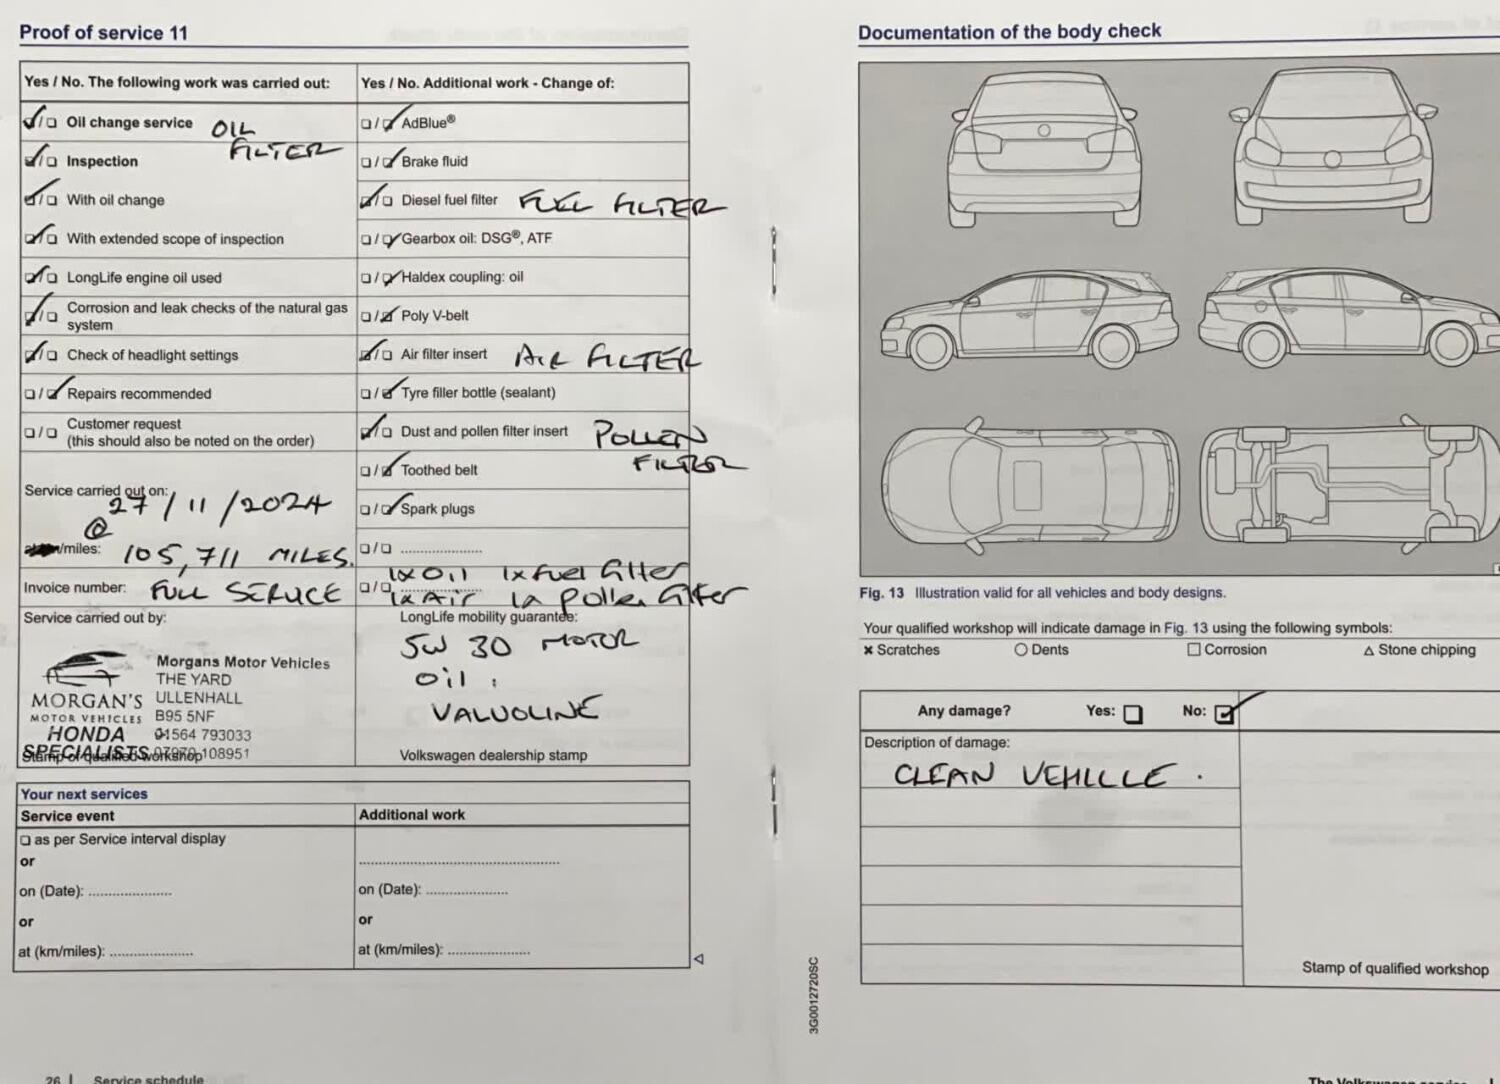 Proof of service 11
Yes / No. The following work was carried out:
Oil change service OIL FILTER
Inspection
With oil change
With extended scope of inspection
LongLife engine oil used
Corrosion and leak checks of the natural gas
system
Check of headlight settings
Repairs recommended
Customer request
(this should also be noted on the order)
Service carried out on:
27/11/2024
@
/miles: 105,711 MILES.
Invoice number: FULL SERVICE
Service carried out by:
Morgans Motor Vehicles
THE YARD
ULLENHALL
B95 5NF
01564 793033
108951
MORGAN'S
MOTOR VEHICLES
HONDA
SPECIALISTS
Stamp of qualified workshop
Yes / No. Additional work - Change of:
AdBlue®
Brake fluid
Diesel fuel filter FUEL FILTER
Gearbox oil: DSG®, ATF
Haldex coupling: oil
Poly V-belt
Air filter insert AIR FILTER
Tyre filler bottle (sealant)
Dust and pollen filter insert POLLEN
FILTER
Toothed belt
Spark plugs
1x Oil 1x fuel filter
1x Air 1x pollen filter
LongLife mobility guarantee:
5W 30 MOTOR
Oil.
VALVOLINE
Volkswagen dealership stamp
Your next services
Service event
as per Service interval display
or
on (Date): ..................
or
at (km/miles): ..................
Additional work
on (Date): ..................
or
at (km/miles): ..................
26 | Service schedule
Documentation of the body check
Fig. 13 Illustration valid for all vehicles and body designs.
Your qualified workshop will indicate damage in Fig. 13 using the following symbols:
× Scratches ○ Dents □ Corrosion △ Stone chipping
Any damage? Yes: No:
Description of damage:
CLEAN VEHICLE.
Stamp of qualified workshop
3G0012720SC
The Volkswagen service